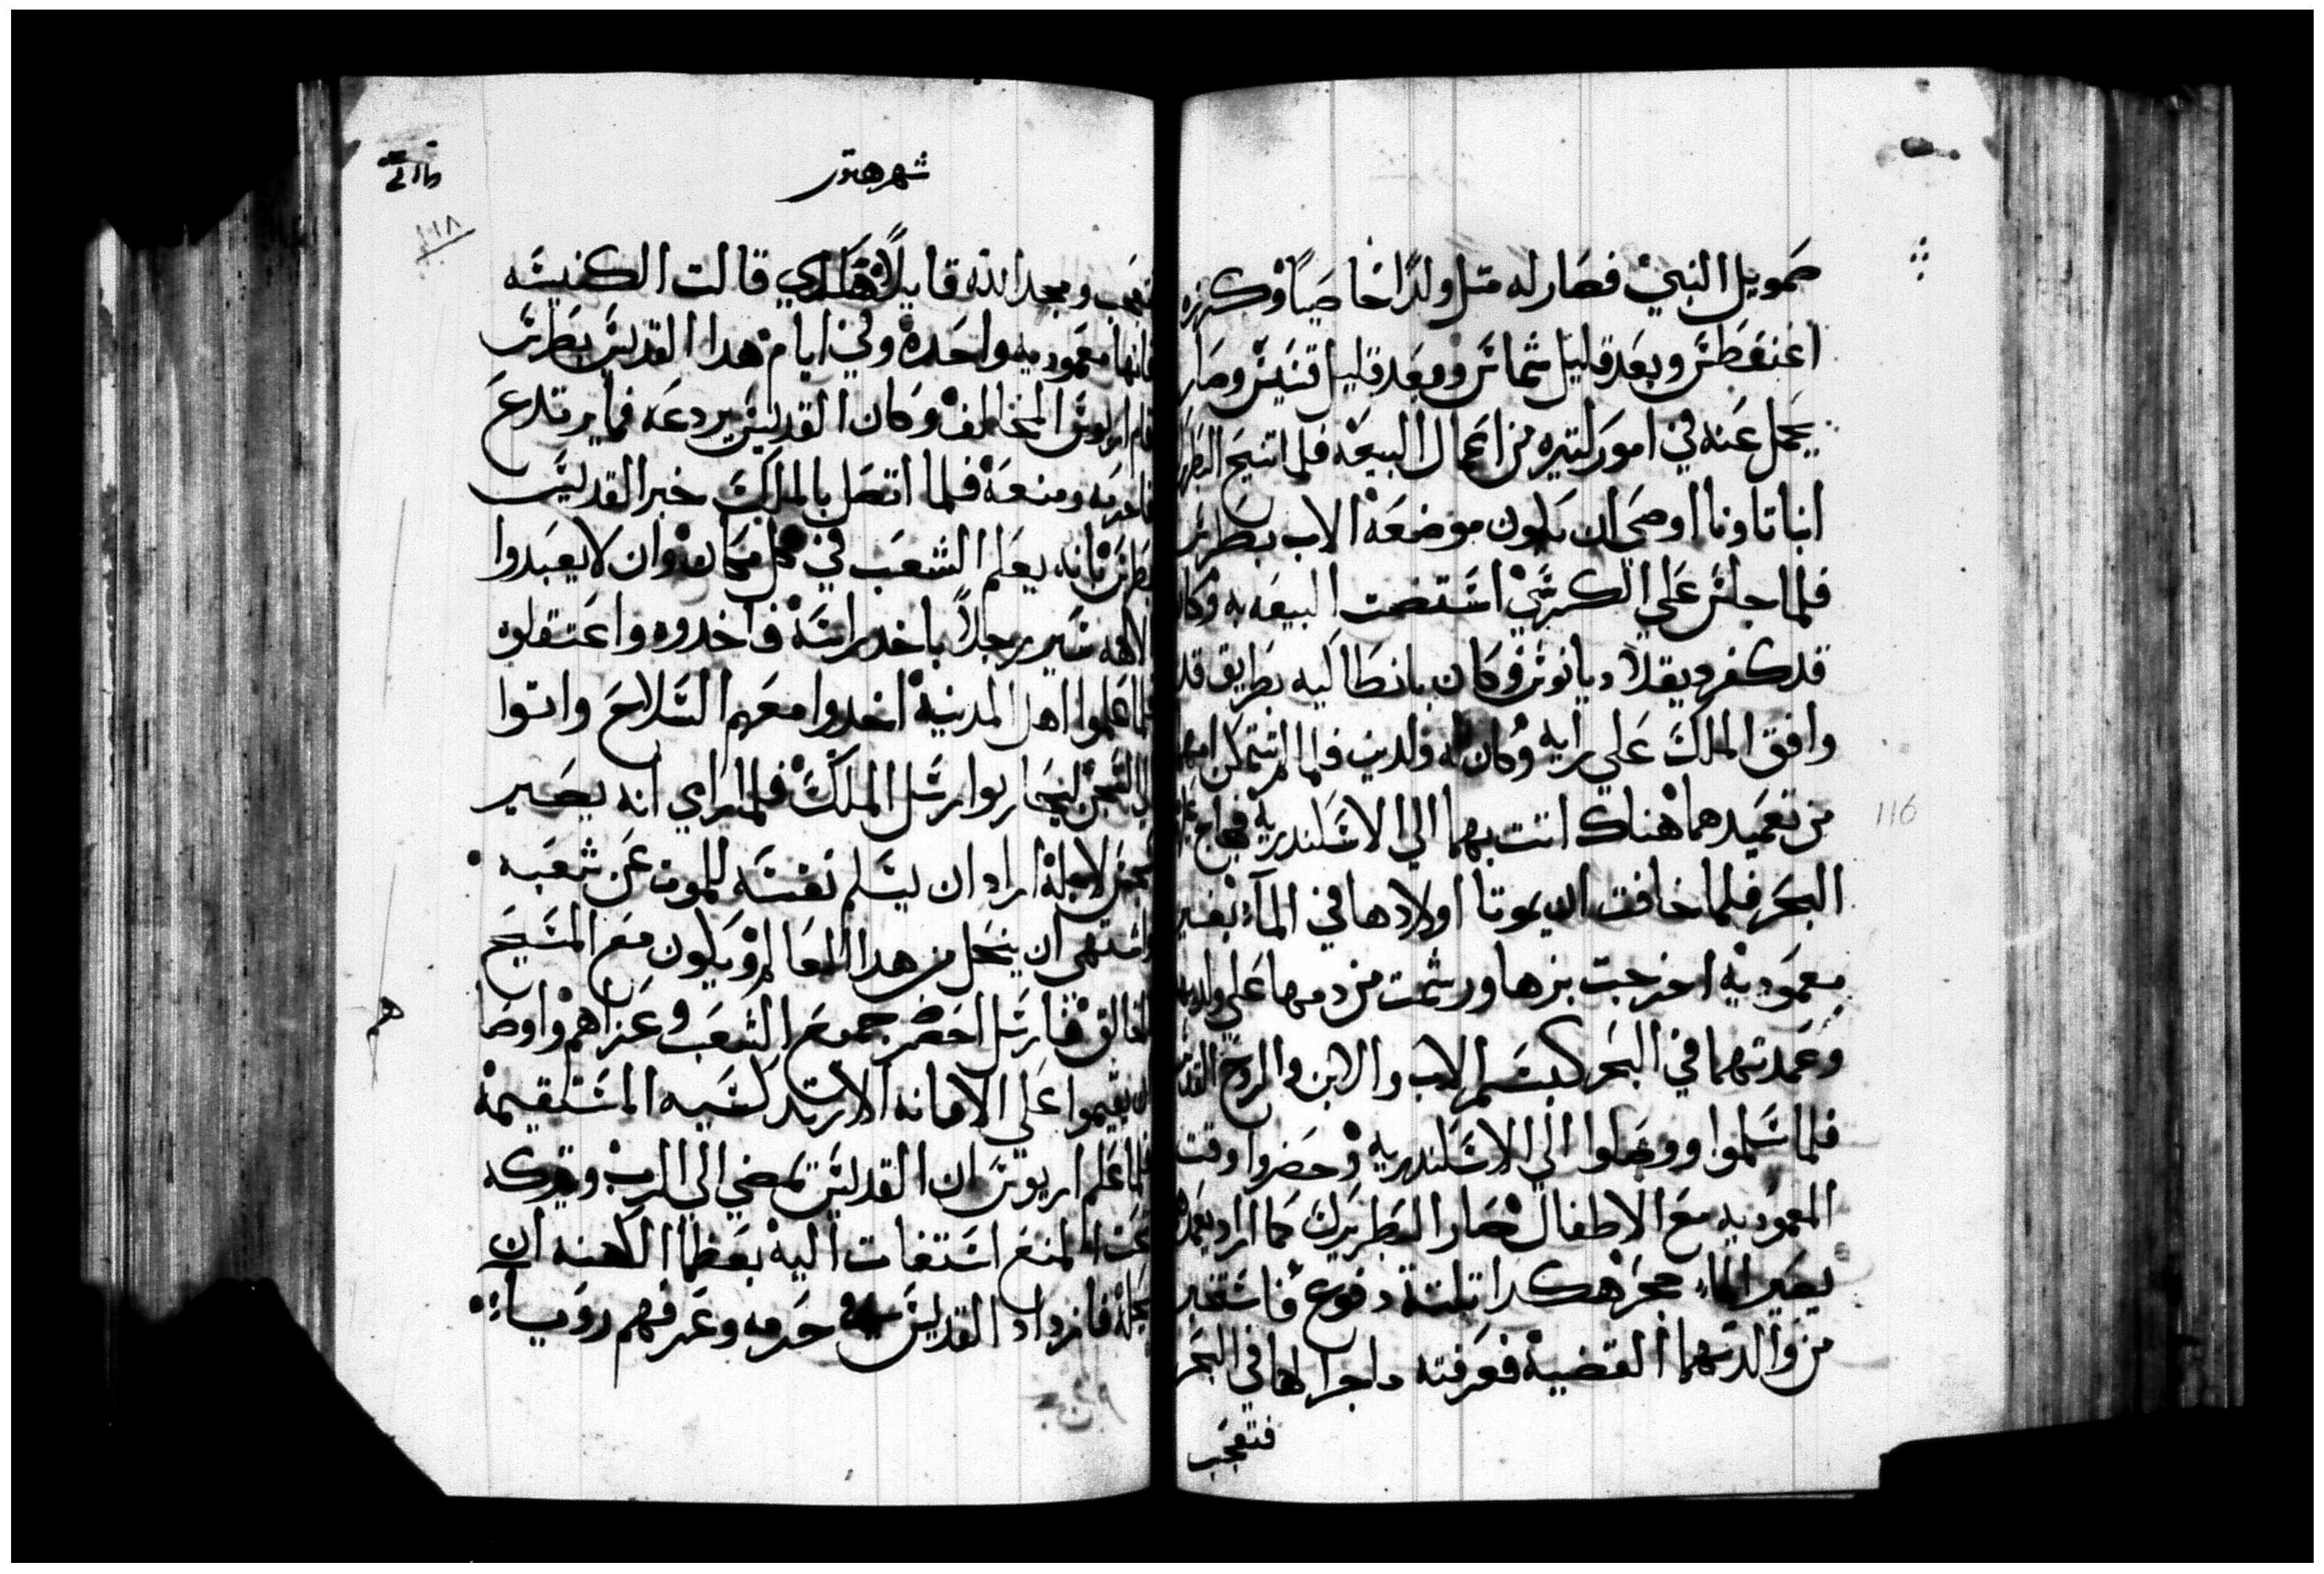 صمويل النبي فصار له متل ولدًا خاصيًا وكرزه
اغنفطس وبعد قليل شماس وبعد قليل قسيس وصار
يحمل عنه في امور كتيره من اعمال البيعه فلما اتنيح البطرك
انبا تاونا اوصي ان يكون موضعه الاب بطرس
فلما جلس علي الكرسي استضت البيعه به وكان
قد كفر ديقلاديانوس وكان بانطاكيه بطريق قد
وافق الملك علي رايه وكان له ولدين فلم تتمكن امهما
من تعميدهما هناك اتت بهما الي الاسكندريه فهاج عليها
البحر فلما خافت ان يموتا اولادها في الماء بغير
معموديه اخرجت بزها ورشمت من دمها علي ولديها
وعمدتهما في البحر كبسم الاب والابن والروح القدس
فلما سلموا ووصلوا الي الاسكندريه وحضروا وقت
المعموديه مع الاطفال صار البطريرك كما اراد يعمدهم
يصير الماء حجر هكدا تلتة دفوع فاستخبر
من والدتهما القضية فعرفته داجرا لها في البحر
فتعجب
شهر هتور
١١٨
فتعجب ومجد الله قايلًا هكدي قالت الكنيسه
فانها معموديه واحده وفي ايام هدا القديس بطرس
قام اريوس المخالف وكان القديس يردعه فما يرتدع
فاحرمه ومنعه فلما اتصل بالملك خبر القديس
بطرس بانه يعلم الشعب في كل مكان وان لا يعبدوا
الالهه سير رجلًا باخد راسه فاخدوه واعتقلوه
فلما علموا اهل المدينة اخدوا معهم السلاح واتوا
الي السجن ليحاربوا رسل الملك فلما راي انه يصير
سجس لاجله اراد ان يسلم نفسه للموت عن شعبه
واشتهي ان ينحل من هدا العالم ويكون مع المسيح
الخالق فارسل احضر جميع الشعب وعزاهم واوصا
ان يقيموا علي الامانه الارتدكسيه المستقيمة
فلما علم اريوس ان القديس يمضي الي الرب ويتركه
تحت المنع استغات اليه بعظما الكهنه ان
يحله فازداد القديس حرمه وعرفهم رويا
116